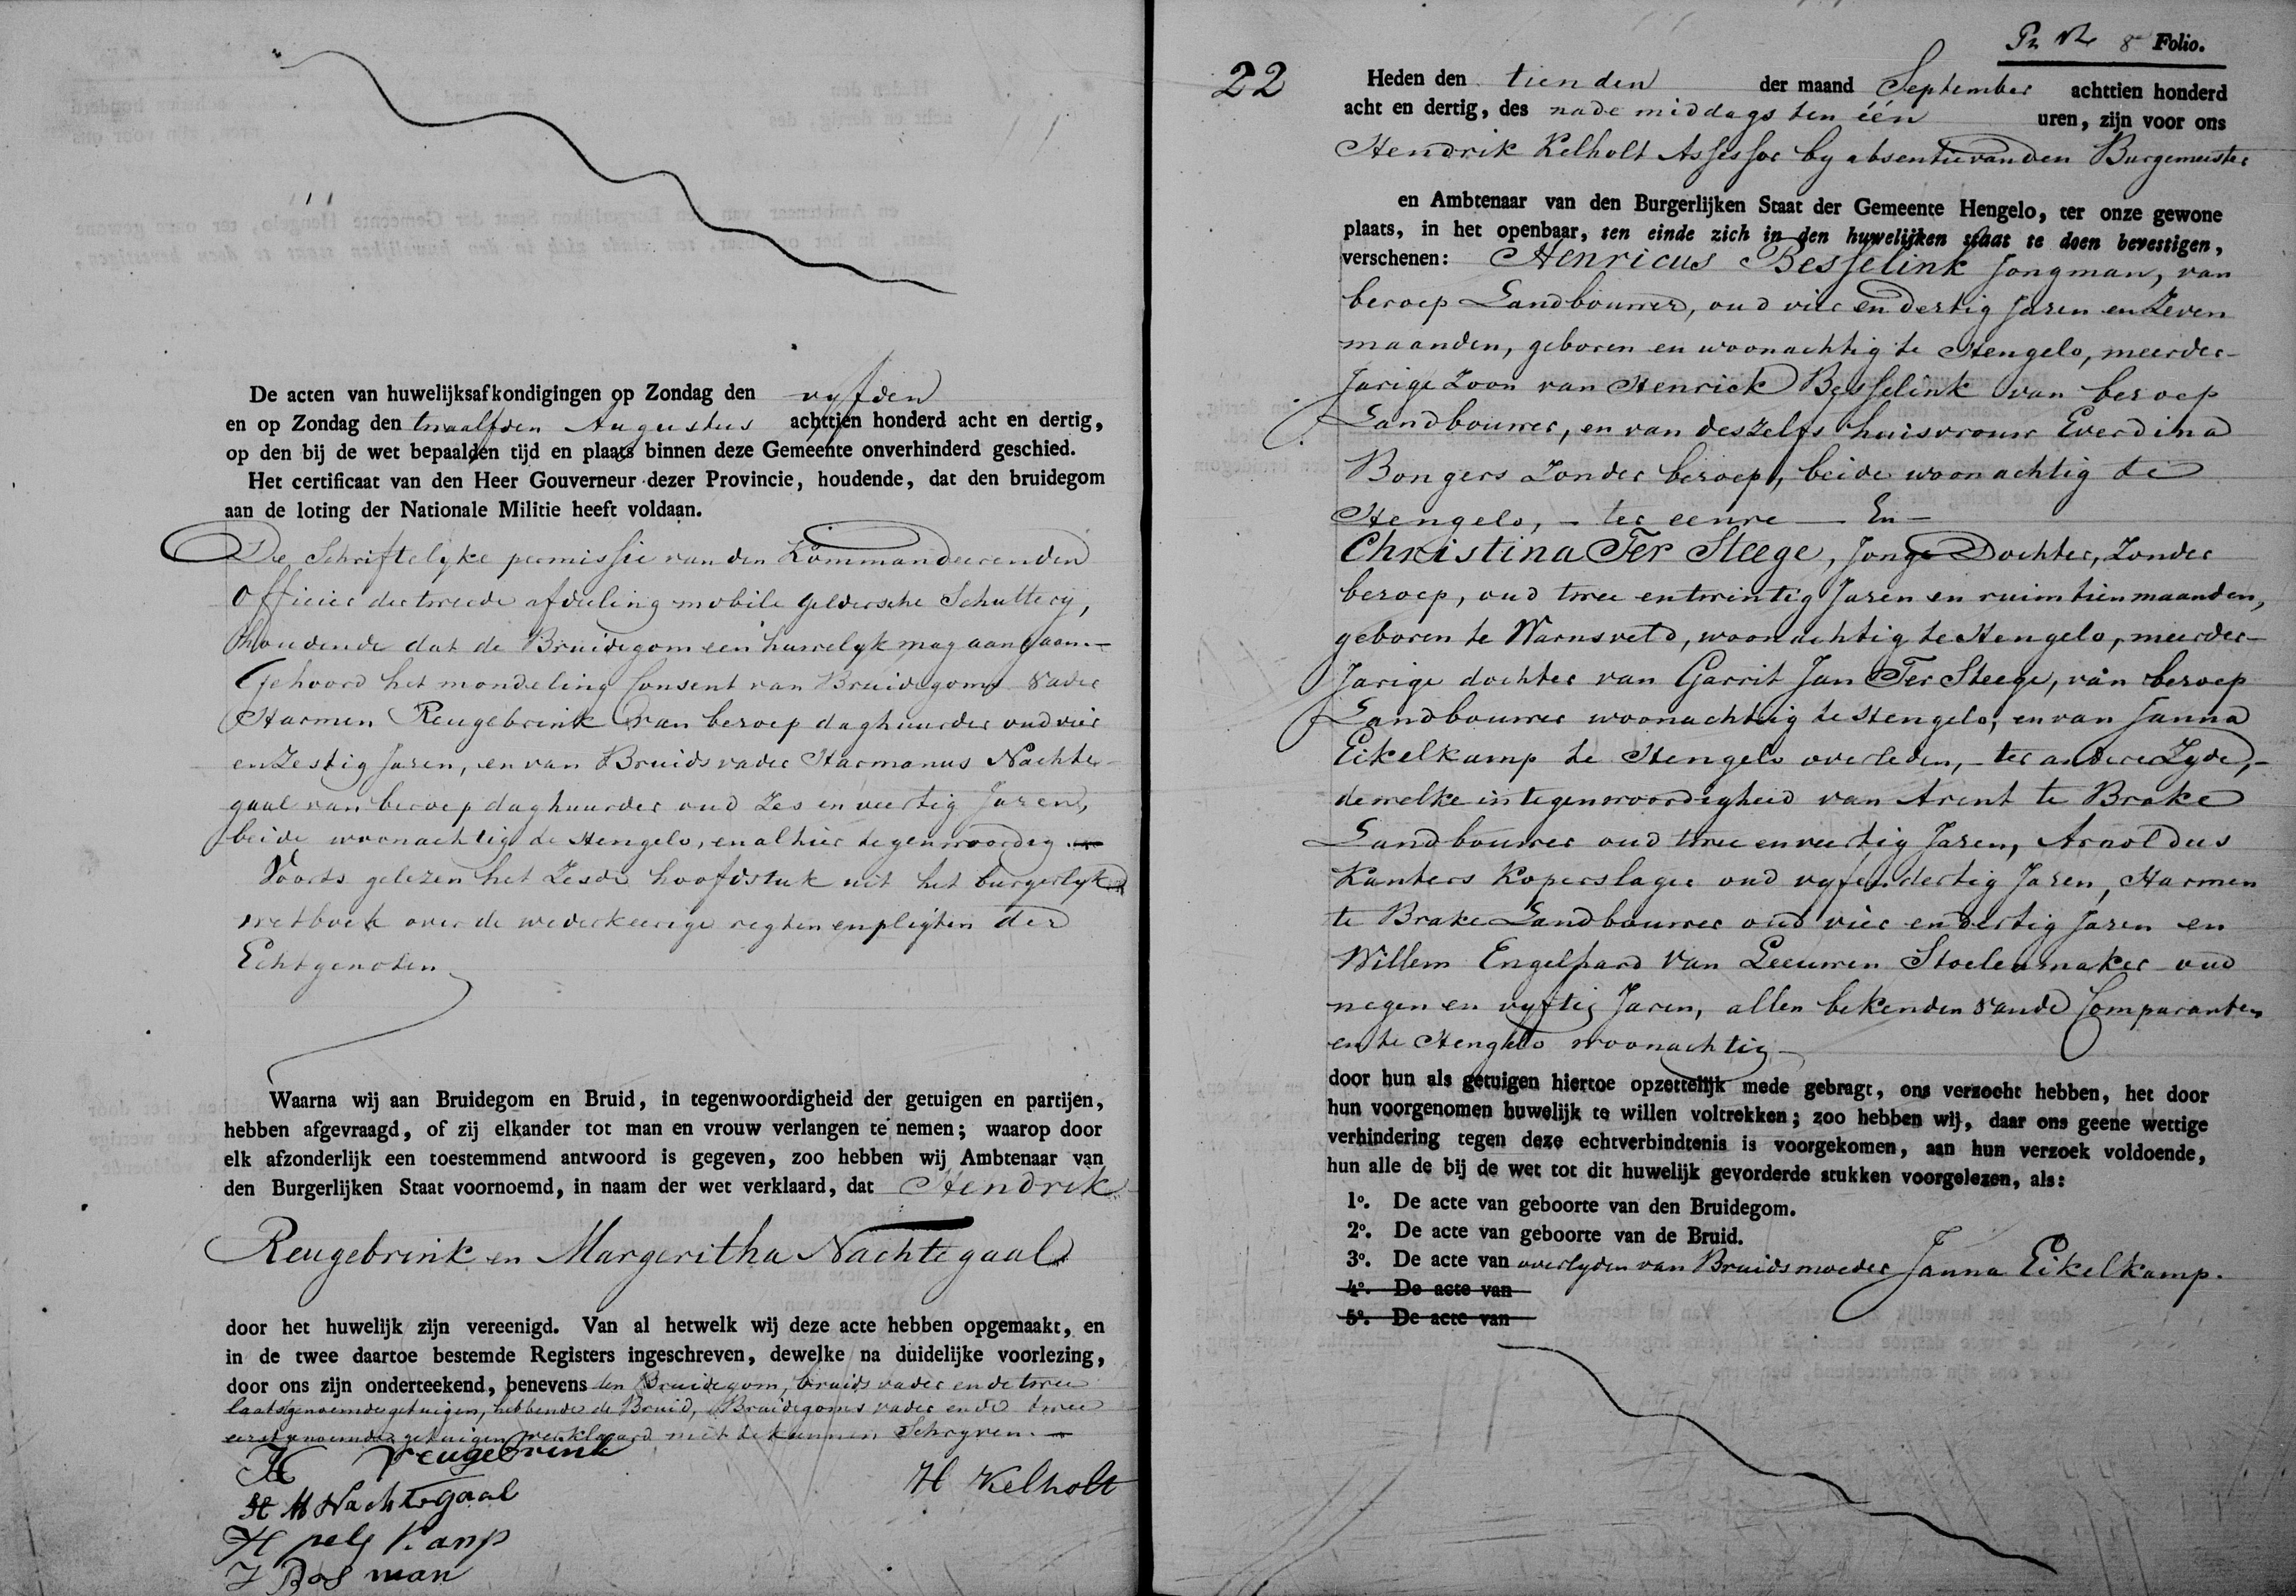 De acten van huwelijksafkondigingen op Zondag den vyfden
en op Zondag den twaalfden Augustus achttien honderd acht en dertig,
op den bij de wet bepaalden tijd en plaats binnen deze Gemeente onverhinderd geschied.
Het certificaat van den Heer Gouverneur dezer Provincie, houdende, dat den bruidegom
aan de loting der Nationale Militie heeft voldaan.
De Schriftelyke permissie van den Kommandeerenden
Officier der tweede afdeeling mobile Geldersche Schuttery,
houdende dat de Bruidegom een huwelyk mag aangaan.—
Gehoord het mondeling Consent van Bruidegoms Vader
Harmen Reugebrink van beroep daghuurder oud vier
en Zestig Jaren, en van Bruids vader Harmanus Nachte-
gaal van beroep daghuurder oud Zes en veertig Jaren,
beide woonachtig te Hengelo, en alhier tegenwoordig.
Voorts gelezen het Zesde hoofdstuk uit het burgerlyk
wetboek over de wederkeerige regten en pligten der
Echtgenoten
Waarna wij aan Bruidegom en Bruid, in tegenwoordigheid der getuigen en partijen,
hebben afgevraagd, of zij elkander tot man en vrouw verlangen te nemen; waarop door
elk afzonderlijk een toestemmend antwoord is gegeven, zoo hebben wij Ambtenaar van
den Burgerlijken Staat voornoemd, in naam der wet verklaard, dat Hendrik
Reugebrink en Margeritha Nachtegaal
door het huwelijk zijn vereenigd. Van al hetwelk wij deze acte hebben opgemaakt, en
in de twee daartoe bestemde Registers ingeschreven, dewelke na duidelijke voorlezing,
door ons zijn onderteekend, benevens den Bruidegom, bruids vader en de twee
laatstgenoemde getuigen, hebbende de Bruid, Bruidegoms vader en de twee
eerstgenoemde getuigen verklaard niet te kunnen Schryven.—
H Reugebrink
H Kelholt
H M Nachtegaal
H
J Bosman
8 Folio.
22
Heden den tienden der maand September achttien honderd
acht en dertig, des nade middags ten één uren, zijn voor ons
Hendrik Kelholt Assessor by absentie van den Burgemeester
en Ambtenaar van den Burgerlijken Staat der Gemeente Hengelo, ter onze gewone
plaats, in het openbaar, ten einde zich in den huwelijken staat te doen bevestigen,
verschenen: Henricus Besselink Jongman, van
beroep Landbouwer, oud vier en dertig Jaren en Zeven
maanden, geboren en woonachtig te Hengelo, meerder-
Jarige Zoon van Henrick Besselink van beroep
Landbouwer, en van deszelfs huisvrouw Everdina
Bongers Zonder beroep, beide woonachtig te
Hengelo, — ter eenre — En —
Christina Ter Steege, Jonge Dochter, Zonder
beroep, oud twee en twintig Jaren en ruim tien maanden,
geboren te Warnsveld, woonachtig te Hengelo, meerder-
Jarige dochter van Garrit Jan Ter Steege, van beroep
Landbouwer woonachtig te Hengelo, en van Janna
Eikelkamp te Hengelo overleden, — ter andere Zyde, —
dewelke in tegenwoordigheid van Arent te Brake
Landbouwer oud twee en veertig Jaren, Arnoldus
Kanters Koperslager oud vyf en dertig Jaren, Harmen
te Brake Landbouwer oud vier en dertig Jaren en
Willem Engelhard Van Leeuwen Stoelenmaker oud
negen en vyftig Jaren, allen bekenden van de Comparanten
en te Hengelo woonachtig
door hun als getuigen hiertoe opzettelijk mede gebragt, ons verzocht hebben, het door
hun voorgenomen huwelijk te willen voltrekken; zoo hebben wij, daar ons geene wettige
verhindering tegen deze echtverbindtenis is voorgekomen, aan hun verzoek voldoende,
hun alle de bij de wet tot dit huwelijk gevorderde stukken voorgelezen, als:
1º. De acte van geboorte van den Bruidegom.
2º. De acte van geboorte van de Bruid.
3º. De acte van overlyden van Bruids moeder Janna Eikelkamp.
4º. De acte van
5º. De acte van